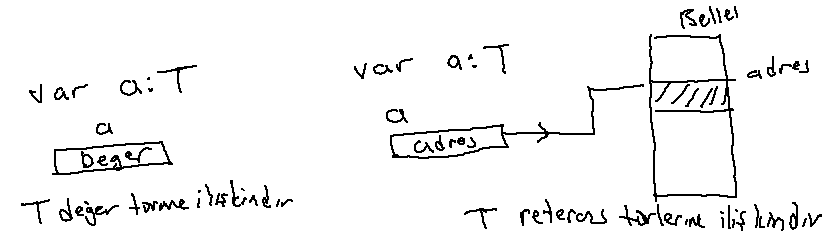 var a:T
a
Değer
T değer türüne ilişkindir
var a:T
a
adres
Bellek
adres
T referans türlerine ilişkindir